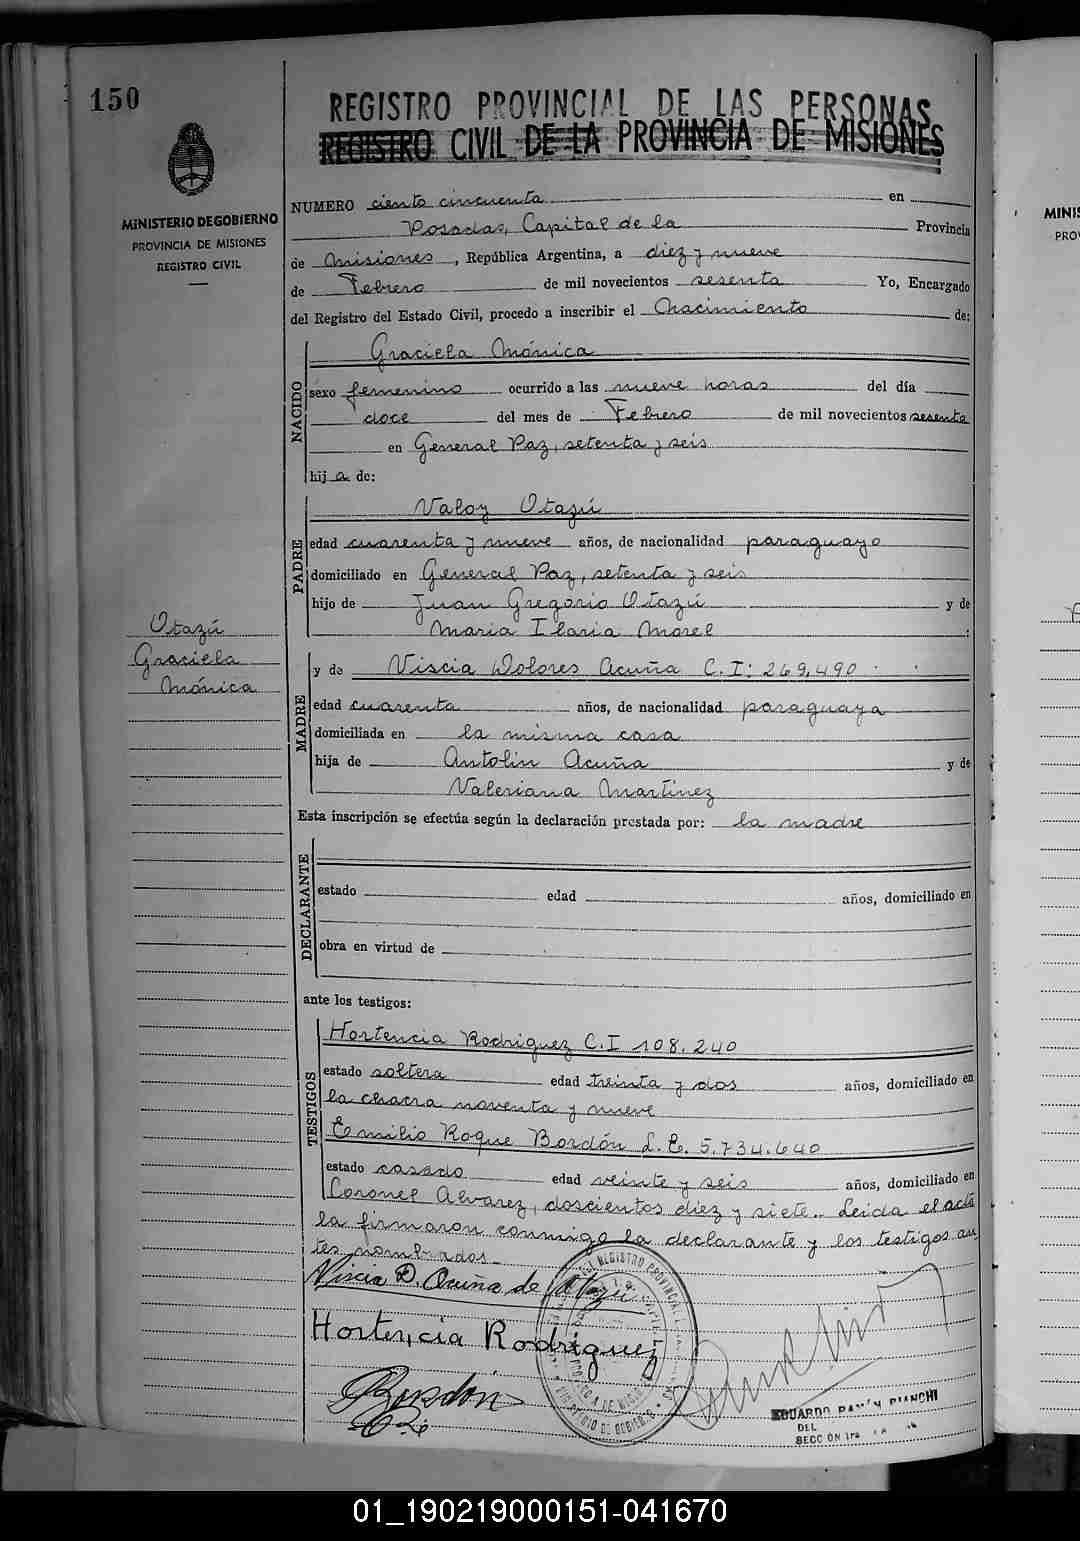 150
REGISTRO PROVINCIAL DE LAS PERSONAS
REGISTRO CIVIL DE LA PROVINCIA DE MISIONES
MINISTERIO DE GOBIERNO
PROVINCIA DE MISIONES
REGISTRO CIVIL
NUMERO ciento cincuenta en
Posadas, Capital de la Provincia
de Misiones, República Argentina, a diez y nueve
de Febrero de mil novecientos sesenta Yo, Encargado
del Registro del Estado Civil, procedo a inscribir el Nacimiento de:
NACIDO
Graciela Mónica
sexo femenino ocurrido a las nueve horas del día
doce del mes de Febrero de mil novecientos sesenta
en General Paz, setenta y seis
hij a de:
PADRE
Valoy Otazú
edad cuarenta y nueve años, de nacionalidad paraguayo
domiciliado en General Paz, setenta y seis
hijo de Juan Gregorio Otazú y de
Maria Ilaria Morel
Otazú
Graciela
Mónica
MADRE
y de Viscia Dolores Acuña C.I: 269.490
edad cuarenta años, de nacionalidad paraguaya
domiciliada en la misma casa
hija de Antolin Acuña y de
Valeriana Martinez
Esta inscripción se efectúa según la declaración prestada por: la madre
DECLARANTE
estado edad años, domiciliado en
obra en virtud de
ante los testigos:
TESTIGOS
Hortencia Rodriguez C.I 108.240
estado soltera edad treinta y dos años, domiciliado en
la chacra noventa y nueve
Emilio Roque Bordón L.E. 5.734.640
estado casado edad veinte y seis años, domiciliado en
Coronel Alvarez, doscientos diez y siete.. Leida el acta
la firmaron conmigo la declarante y los testigos an
tes nombrados.-
Viscia D. Acuña de Otazú
Hortencia Rodriguez
Bordón
EDUARDO RAMÓN BIANCHI
DEL
SECCION
MINIS
PRO
01_190219000151-041670